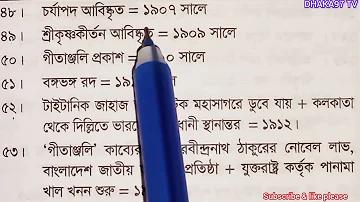 DHAKA97 TV
৪৮। চর্যাপদ আবিষ্কৃত = ১৯০৭ সালে
৪৯। শ্রীকৃষ্ণকীর্তন আবিষ্কৃত = ১৯০৯ সালে
৫০। গীতাঞ্জলি প্রকাশ = ০ সালে
৫১। বঙ্গভঙ্গ রদ = ১
৫২। টাইটানিক জাহাজ ক মহাসাগরে ডুবে যায় + কলকাতা
থেকে দিল্লিতে ভারতে ধানী স্থানান্তর = ১৯১২।
৫৩। ‘গীতাঞ্জলি’ কাব্যের রবীন্দ্রনাথ ঠাকুরের নোবেল লাভ,
বাংলাদেশ জাতীয় প্রতিষ্ঠা + যুক্তরাষ্ট্র কর্তৃক পানামা
খাল খনন শুরু = ১
Subscribe & like please